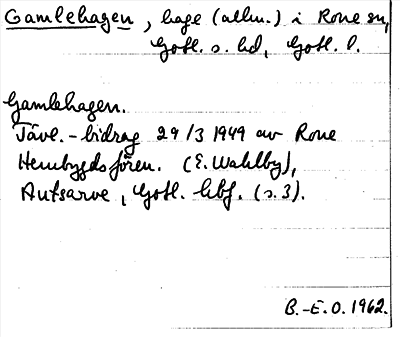 Gamlehagen, hage (allm.) i Rone sn,
Gotl. s. hd, Gotl. l.
Gamlehagen.
Tävl.-bidrag 29/3 1949 av Rone
Hembygdsfören. (E. Wahlby),
Autsarve, Gotl. hbf. (s.3).
B.-E.O. 1962.